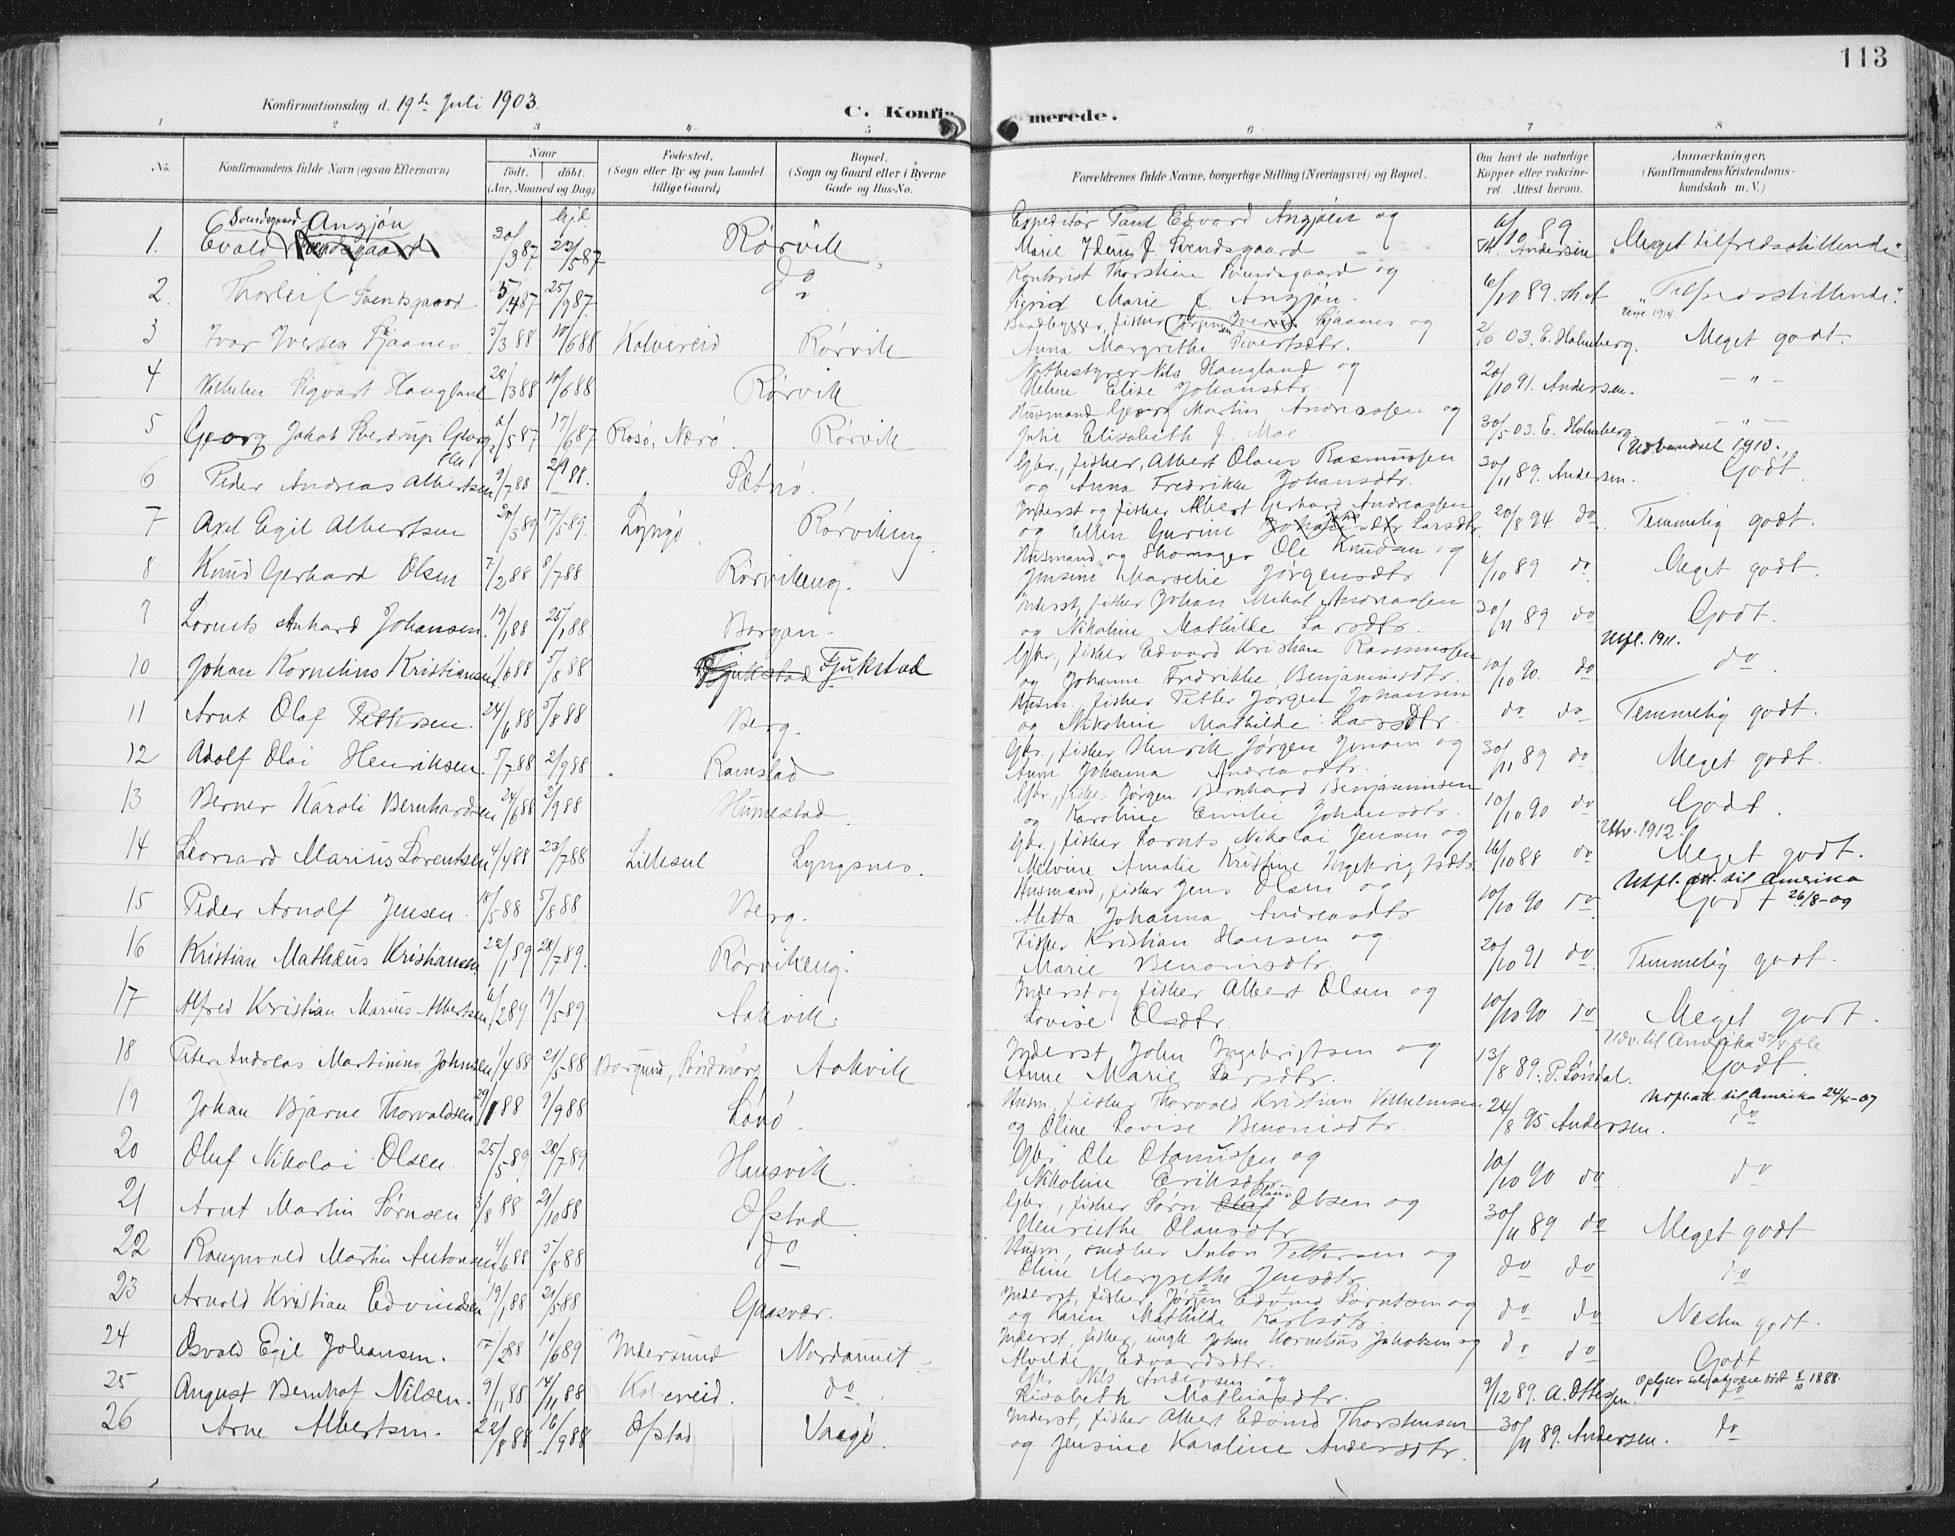 113
Konfirmationsdag d. 19de Juli 1903.
C. Konfirmerede.
1 2 3 4 5 6 7 8
No.
Konfirmandens fulde Navn (ogsaa Efternavn)
Naar
født. døbt.
(Aar, Maaned og Dag)
Fødested.
(Sogn eller By og paa Landet
tillige Gaard)
Bopæl.
(Sogn og Gaard eller i Byerne
Gade og Hus-No.
Forældrenes fulde Navne, borgerlige Stilling (Næringsvei) og Bopæl.
Om havt de naturlige
Kopper eller vakcine-
ret Attest herom.
Anmærkninger.
(Konfirmandens Kristendoms-
kundskab m. V.)
Svendsgaard Angjøn hjd.
1. Evald Svendsgaard 30/3 87 22/5 87 Rørvik Expeditør Paul Edvard Angjøen og 6/10 89
Marie J Svendsgaard Th. Andersen "Meget tilfredsstillende"
2. Thorleif Svendsgaard 5/4 87 25/9 87 do Kontorist Thorstein Svendsgaard og
Sigrid Marie J. Angjøn. 6/10 89. Th. A "Tilfredsstillende".
3 Ivar Iversen Sjaanes 3/3 88 10/6 88 Kolvereid Rørvik Baadbygger, fisker Jørgen Iversen Sjaanes og
Anna Margrethe Sivertsdtr. 03. E. Holmberg. Meget godt.
4 Vilhelm Sigvart Haugland 28/3 88 10/6 88 Rørvik Notbestyrer Nils Haugland og
Helene Elise Johansdtr. 20/10 91. Andersen. - " -
5 Georg Jakob Sverdrup Georgs. 6/5 87 17/6 87 Rosø, Nærø. Rørvik Husmand Georg Martin Andreassen og
Julie Elisabeth J. Moe 30/5 03. E. Holmberg - " -
Udvandret 1910.
6 Peder Andreas Albertsen 9/7 88 2/9 88. Sætnø. Gbr., fisker, Albert Olaus Rasmussen
og Anna Fredrikke Johansdtr. 30/11 89. Andersen. Godt.
7 Axel Egil Albertsen 20/3 89 17/5 89. Lyngø. Rørvikeng Inderst og fisker Albert Gerhard Andreassen
og Ellen Gurine Larsdtr. 20/8 94 do. Temmelig godt.
8 Knud Gerhard Olsen 7/2 88 8/7 88 Rørvikeng. Husmand og Skomager Ole Knudsen og
Jensine Marselie Jørgensdtr. 6/10 89 do Meget godt.
9 Lornts Anhard Johansen. 19/1 88 25/1 88. Borgan. Inderst, fisker Johan Mikal Andreassen
og Nikoline Mathilde Larsdtr. 30/11 89 do Godt.
Utfl. 1911.
10 Johan Kornelius Kristiansen 1/6 88 5/8 88 Fjukstad Fjukstad Gbr., fisker Edvard Kristian Rasmussen
og Johanne Fredrikke Benjaminsdtr. 10/10 90. do do
11 Arnt Olaf Pettersen. 24/6 88 5/8 88 Berg. Husm., fisker Petter Jørgen Johansen
og Nikoline Mathilde Larsdtr. do do Temmelig godt.
12 Adolf Olai Henriksen. 5/7 88 2/9 88 Ramstad Gbr., fisker Henrik Jørgen Jensen og
Anne Johanna Andreasdtr. 30/11 89 do Meget godt.
13 Berner Karoli Bernhardsen 24/6 88 2/9 88 Humestad. Gbr., fisker Jørgen Bernhard Benjaminsen
og Karoline Emilie Johansdtr. 10/10 90 do Godt.
Utv. 1912.
14 Leonard Marius Lorentsen 4/4 88 23/7 88 Lillesul Lyngsnes. Gbr., fisker Lornts Nikolai Jensen og
Melvine Amalie Kristine Ingebrigtsdtr. 16/10 88 do Meget godt.
Utfl. att. til Amerika
15 Peder Arnolf Jensen. 18/5 88 5/8 88 Berg. Husmand, fisker Jens Olsen og
Metta Johanna Andreasdtr. 10/10 90 do Godt 26/8-09
16 Kristian Mathæus Kristiansen 22/1 89 28/7 89. Rørvikeng. Fisker Kristian Hansen og
Marie Benonisdtr. 20/10 91 do Temmelig godt.
17 Alfred Kristian Marius Albertsen 6/2 89 19/5 89. Aakvik. Inderst og fisker Albert Olsen og
Lovise Olsdtr. 10/10 90 do Meget godt.
Udv. til Amerika
18 Peter Andreas Martinius Johnsen 1/4 88 21/5 88 Borgund, Søndmøre Aakvik Inderst John Ingebrigtsen og
Anne Marie Larsdtr. 13/8 89. P. Lønsdal. Godt.
Utfl. att. til Amerika 24/4-07
19 Johan Bjarne Thorvaldsen 29/1 88 9/9 88 Lønø. Husm., fisker Thorvald Kristian Vilhelmsen
og Oline Lovise Benonisdtr. 24/8 95 Andersen. do
20 Oluf Nikolai Olsen 25/5 89 28/7 89 Hansvik. Gbr. Ole Otanussen og
Nikoline Eriksdtr. 10/10 90 do do
21 Arnt Martin Sørnsen 3/8 88 21/10 88 Ofstad. Gbr., fisker Sørn Olaus Olsen og
Henriethe Olausdtr. 30/11 89 do Meget godt
22 Rangnvald Martin Antonsen 4/6 88 5/8 88 do Husm., snedker Anton Pettersen og
Oline Margrethe Jensdtr. do do do
23 Arnold Kristian Edvindsen 19/1 88 21/5 88 Gaasvær. Inderst, fisker Jørgen Edvind Lorntsen og
og Karen Mathilde Karlsdtr. do do Næsten godt.
24 Osvald Egil Johansen. 17/2 88 10/6 89 Indersund Nordaunet Inderst, fisker, ungk. Johan Kornelius Jakobsen og
Alvilde Edvardsdtr. do do Godt
25 August Bernhof Nilsen. 9/11 88 14/11 88 Kolvereid do Gbr. Nils Andersen og
Elisabeth Mathiasdtr. 9/12 89. A. Ottesen. Oplyser selv at være født 8/10 1888.
do
26 Arne Albertsen. 22/8 88 16/9 88 Ofstad Vaagø. Inderst, fisker Albert Edvind Thorstensen
og Jensine Karoline Andersdtr. 30/11 89. Andersen. do